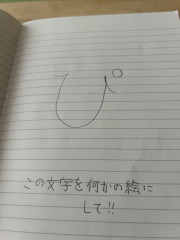 ぴ
この文字を何かの絵に
して!!